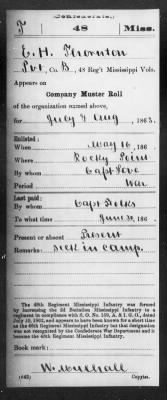 (Confederate.)
T 48 Miss.
E. H. Thornton
Pvt, Co. B, 48 Reg't Mississippi Vols.
Appears on
Company Muster Roll
of the organization named above,
for July & Aug, 1863.
Enlisted:
When May 16, 186
Where Rocky Point
By whom Capt Love
Period War
Last paid:
By whom Capt
To what time June 30, 186
Present or absent Present
Remarks: sick in camp.
The 48th Regiment Mississippi Infantry was formed
by increasing the 2d Battalion Mississippi Infantry to a
regiment in compliance with S. O. No. 159, A. & I. G. O., dated
July 10, 1862, and appears to have been known for a short time
as the 48th Regiment Mississippi Infantry but that designation
was not recognized by the Confederate War Department and it
became the 48th Regiment Mississippi Infantry.
Book mark:
W. Mulhall
(642) Copyist.